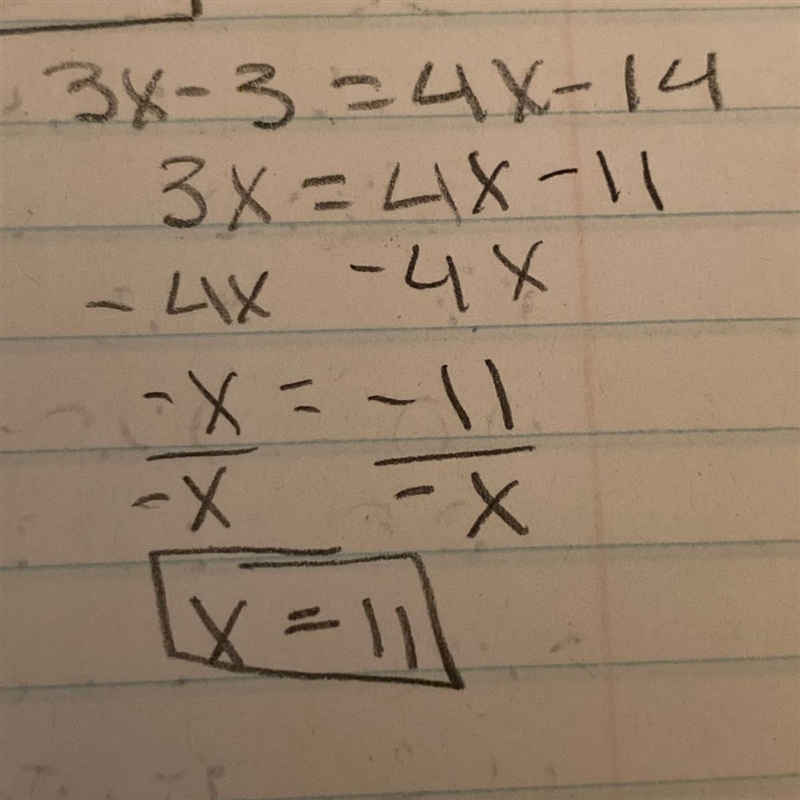 3x - 3 = 4x - 14
3x = 4x - 11
- 4x - 4x
-x = - 11
-x - x
x = 11